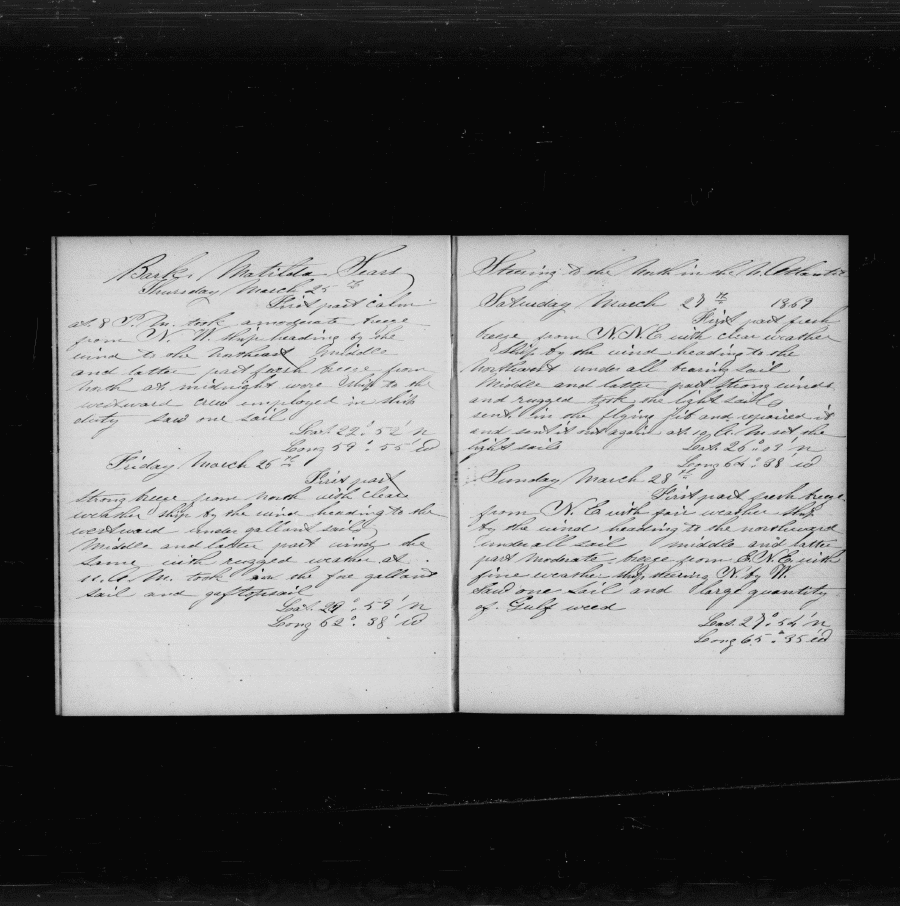 Bark Matilda Sears
Thursday March 25th
First part calm
at 8 P.M. took a moderate breeze
from N. W. Ship heading by the
wind to the Northeast Middle
and latter part fresh breeze from
North at midnight wore Ship to the
westward crew employed in Ship
duty Saw one Sail
Lat. 22° 52' N
Long 59° 55' W
Friday March 26th
First part
Strong breeze from North with clear
weather Ship by the wind heading to the
westward under gallant sails
Middle and latter part wind the
Same with rugged weather at
11. A. M. took in the fore gallant
sail and gaftopsail
Lat. 29° 59' N
Long 62° 38' W
Steering to the North in the N. Atlantic
Saturday March 27th 1869
First part fresh
breeze from N.N.E with clear weather
Ship by the wind heading to the
Northwest under all bearing Sail
Middle and latter part Strong winds
and rugged took the light Sails
sent in the flying jib and repaired it
and sent it out again at 10 A. M. set the
light sails Lat. 26° 03' N
Long 64° 38' W
Sunday March 28th
First part fresh breeze
from N. E with fair weather Ship
by the wind heading to the northward
under all sail middle and latter
part moderate breeze from E.N.E. with
fine weather Ship steering N. by W.
Saw one sail and large quantity
of Gulf weed
Lat. 27° 54' N
Long 65° 35 W